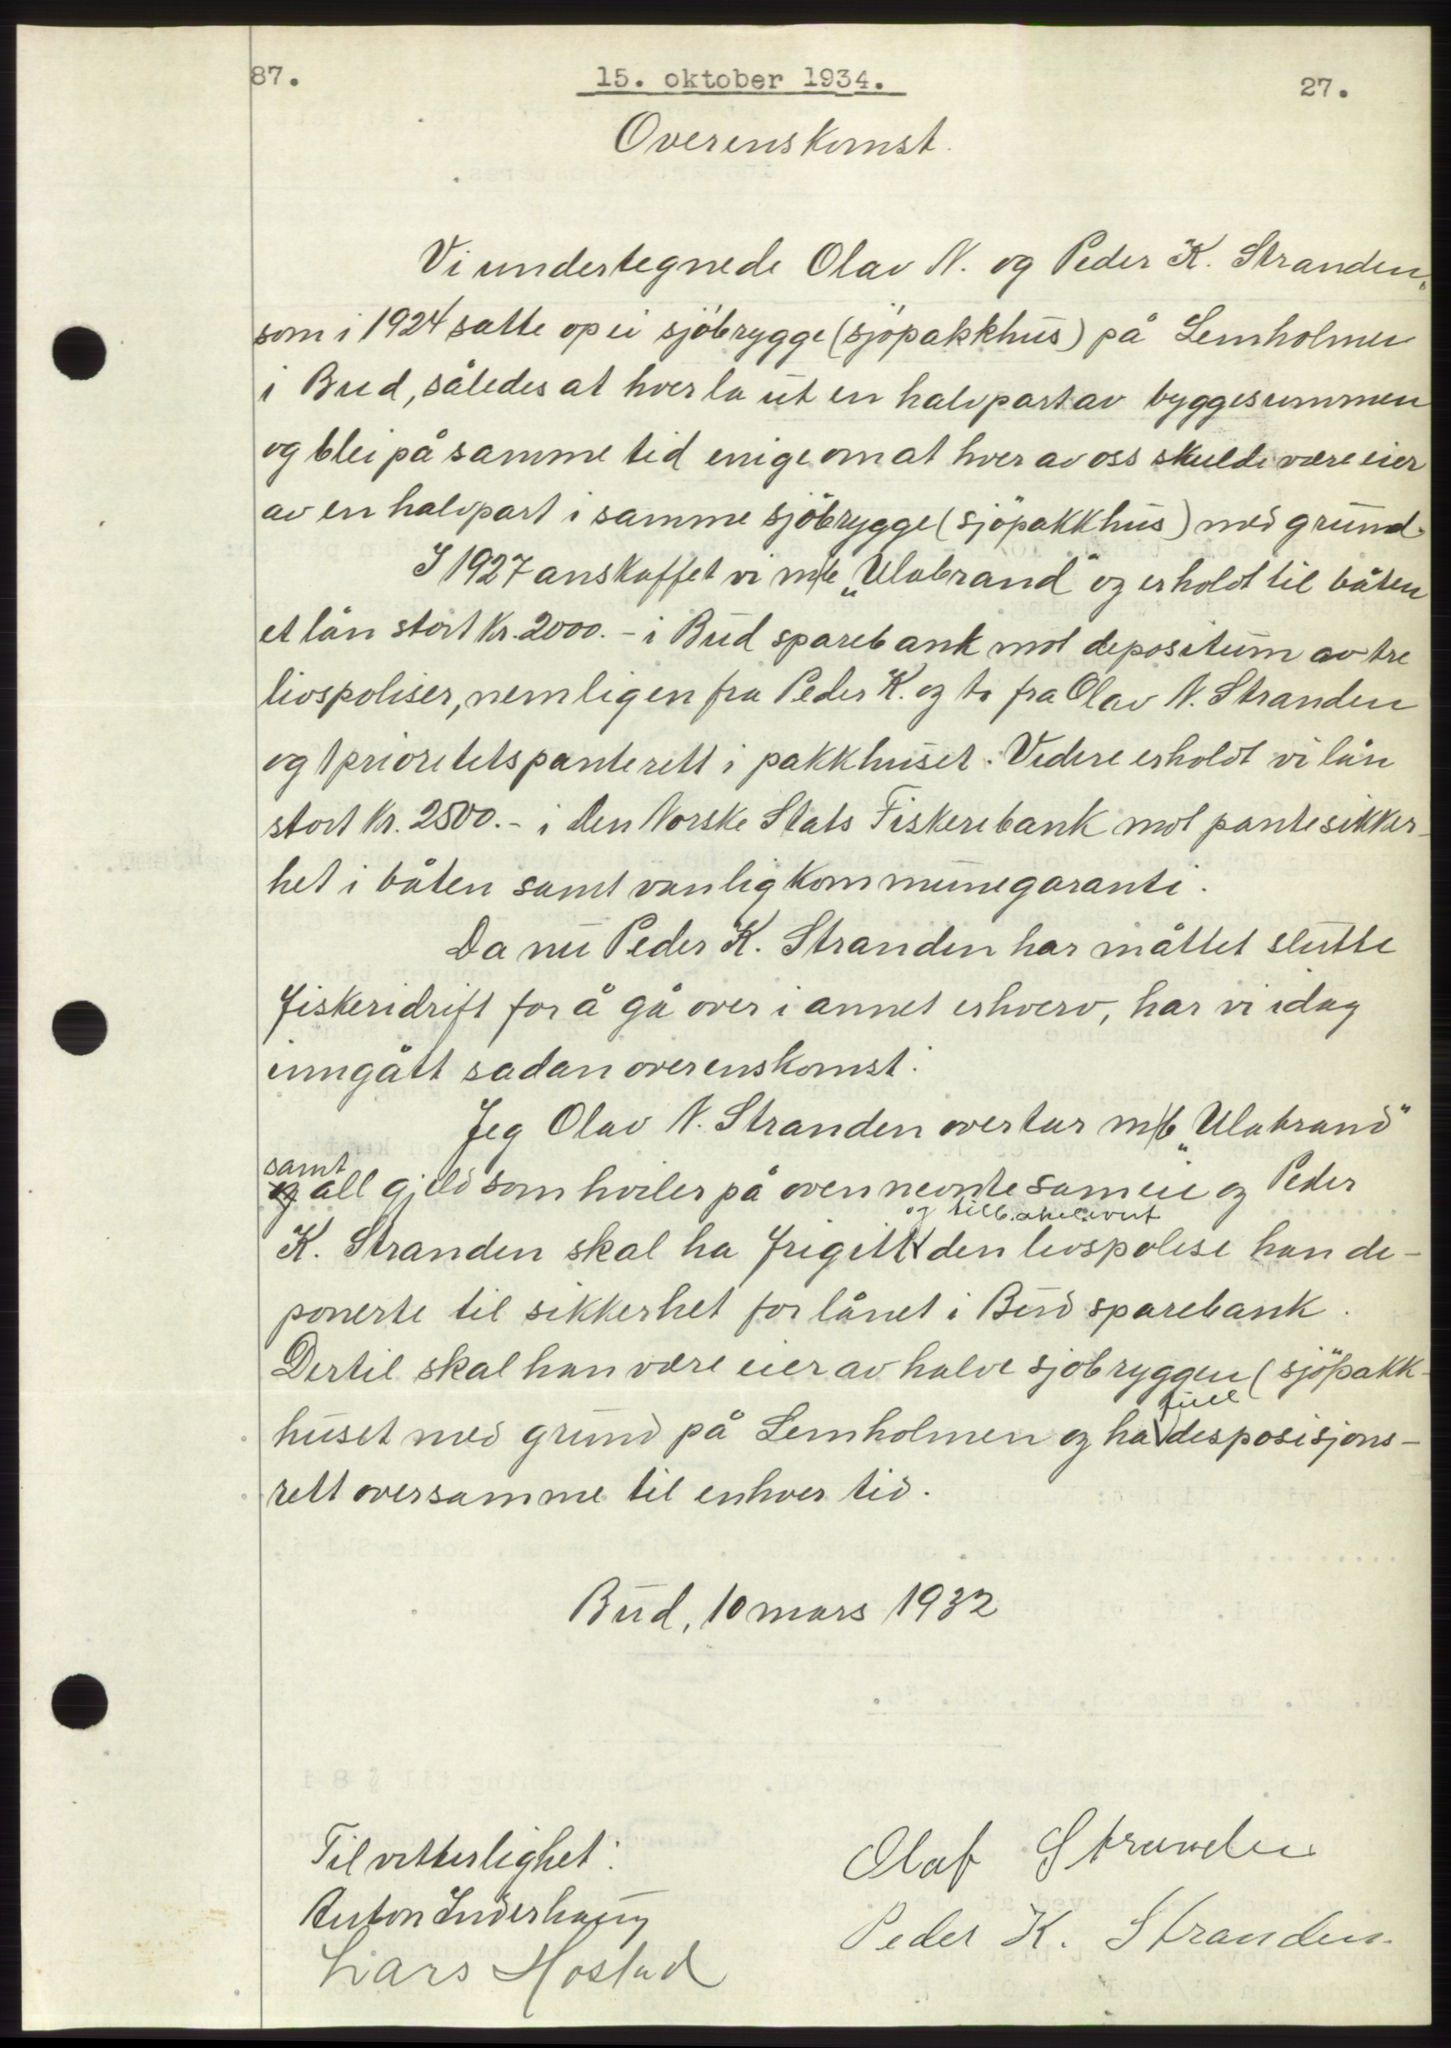 87.
15. oktober 1934.
27.
Overenskomst.
Vi undertegnede Olav N. og Peder K. Stranden,
som i 1924 satte op ei sjöbrygge (sjöpakkhus) på Lemholmen
i Bud, således at hver la ut en halvpart av byggesummen
og blei på samme tid enige om at hver av oss skulde være eier
av en halvpart i samme sjöbrygge (sjöpakkhus) med grund.
I 1927 anskaffet vi m/b „Ulabrand" og erholdt til båten
et lån stort Kr. 2000.- i Bud sparebank mot depositum av tre
livspoliser, nemlig en fra Peder K. og to fra Olav N. Stranden
og 1 prioritetspanterett i pakkhuset. Videre erholdt vi lån
stort Kr. 2500.- i Den Norske Stats Fiskeribank mot pantesikker-
het i båten samt vanlig kommunegaranti.
Da nu Peder K. Stranden har måttet slutte
fiskeridrift for å gå over i annet erhverv, har vi idag
inngått sadan overenskomst:
Jeg Olav N. Stranden overtar m/b „Ulabrand"
samt
og all gjeld som hviler på ovennevnte sameie og Peder
og tilbakelevert
K. Stranden skal ha frigitt den livspolise han de-
ponerte til sikkerhet for lånet i Bud sparebank.
Dertil skal han være eier av halve sjöbryggen (sjöpakk-
full
huset med grund på Lemholmen og ha desposisjons-
rett over samme til enhver tid.
Bud, 10 mars 1932
Til vitterlighet:
Anton Inderhaug
Lars Hostad
Olaf Stranden
Peder K. Stranden.